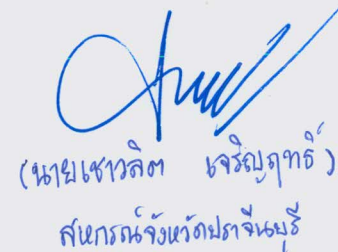 (นายเชาวลิต เจริญฤทธิ์)
สหกรณ์จังหวัดปราจีนบุรี